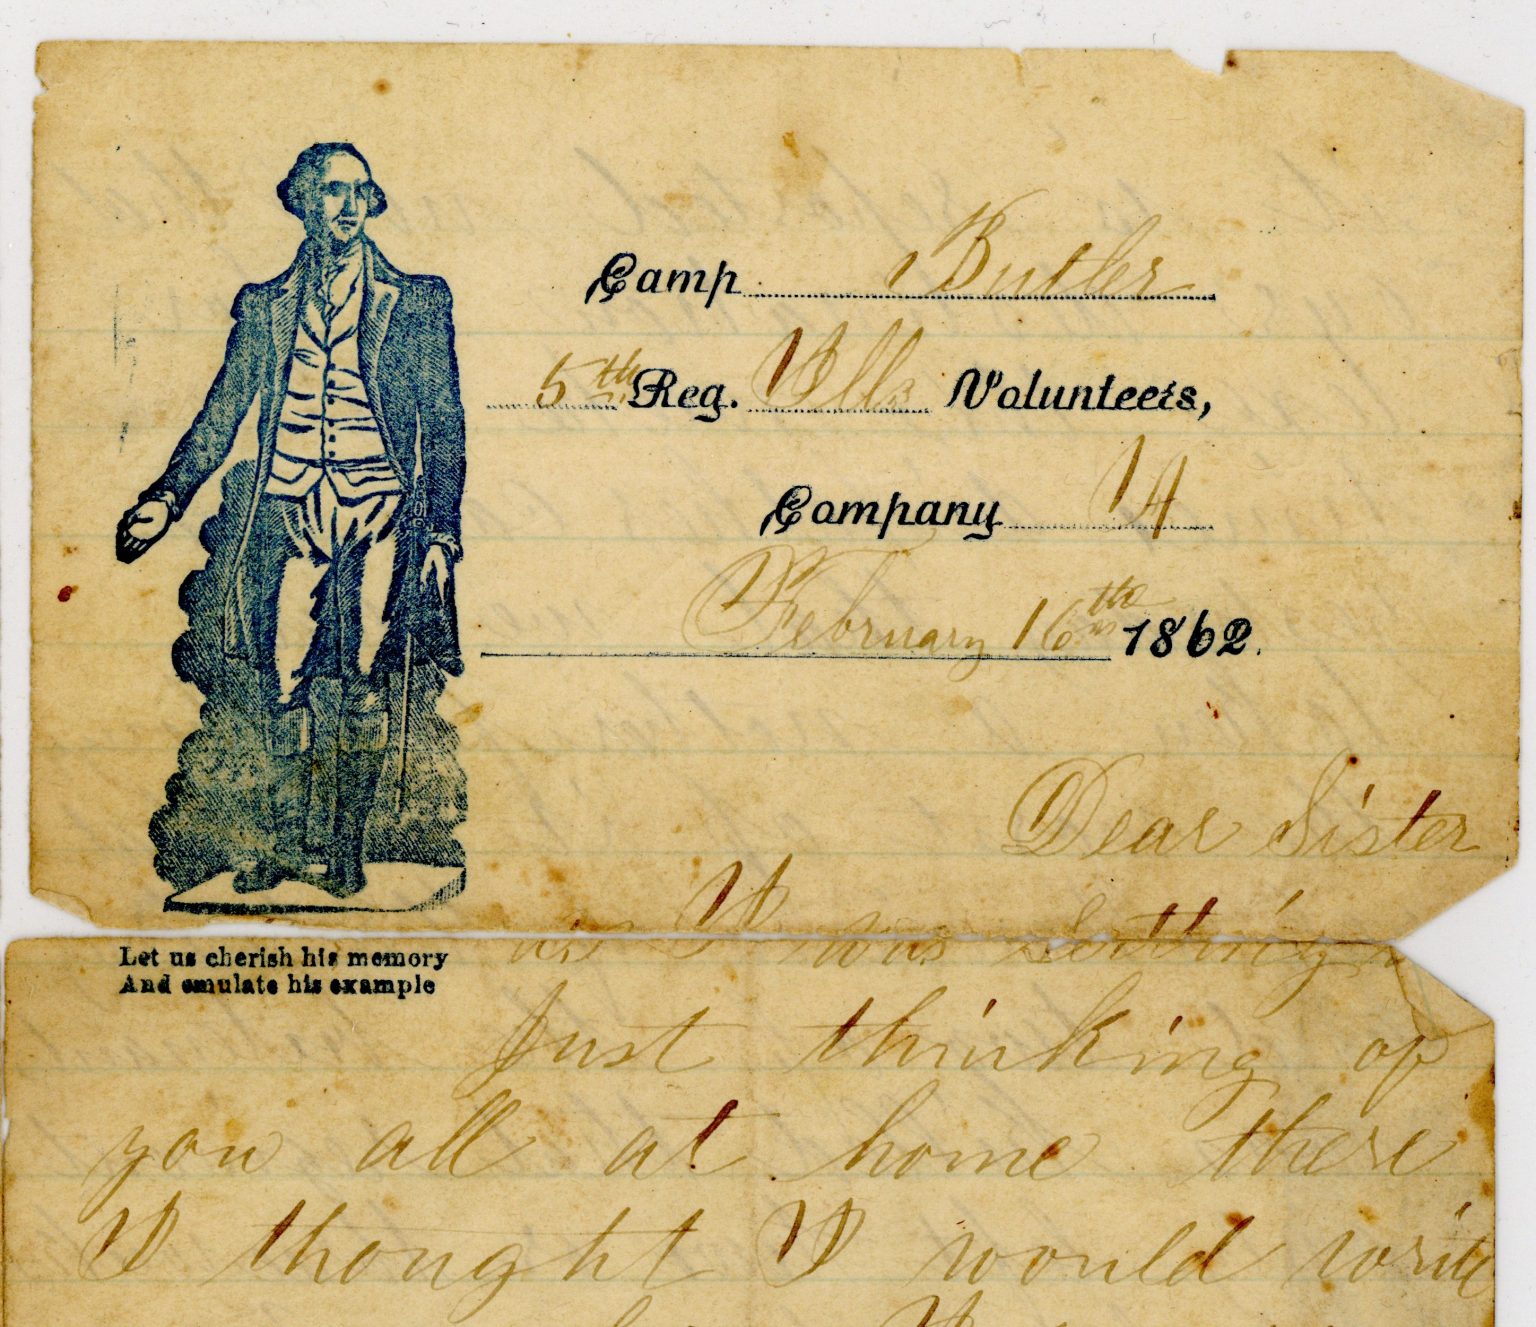 Camp Butler
5th Reg. Ills Volunteers,
Company
February 16th 1862.
Dear Sister
as I was Setting
Just thinking of
you all at home there
I thought I would write
Let us cherish his memory
And emulate his example